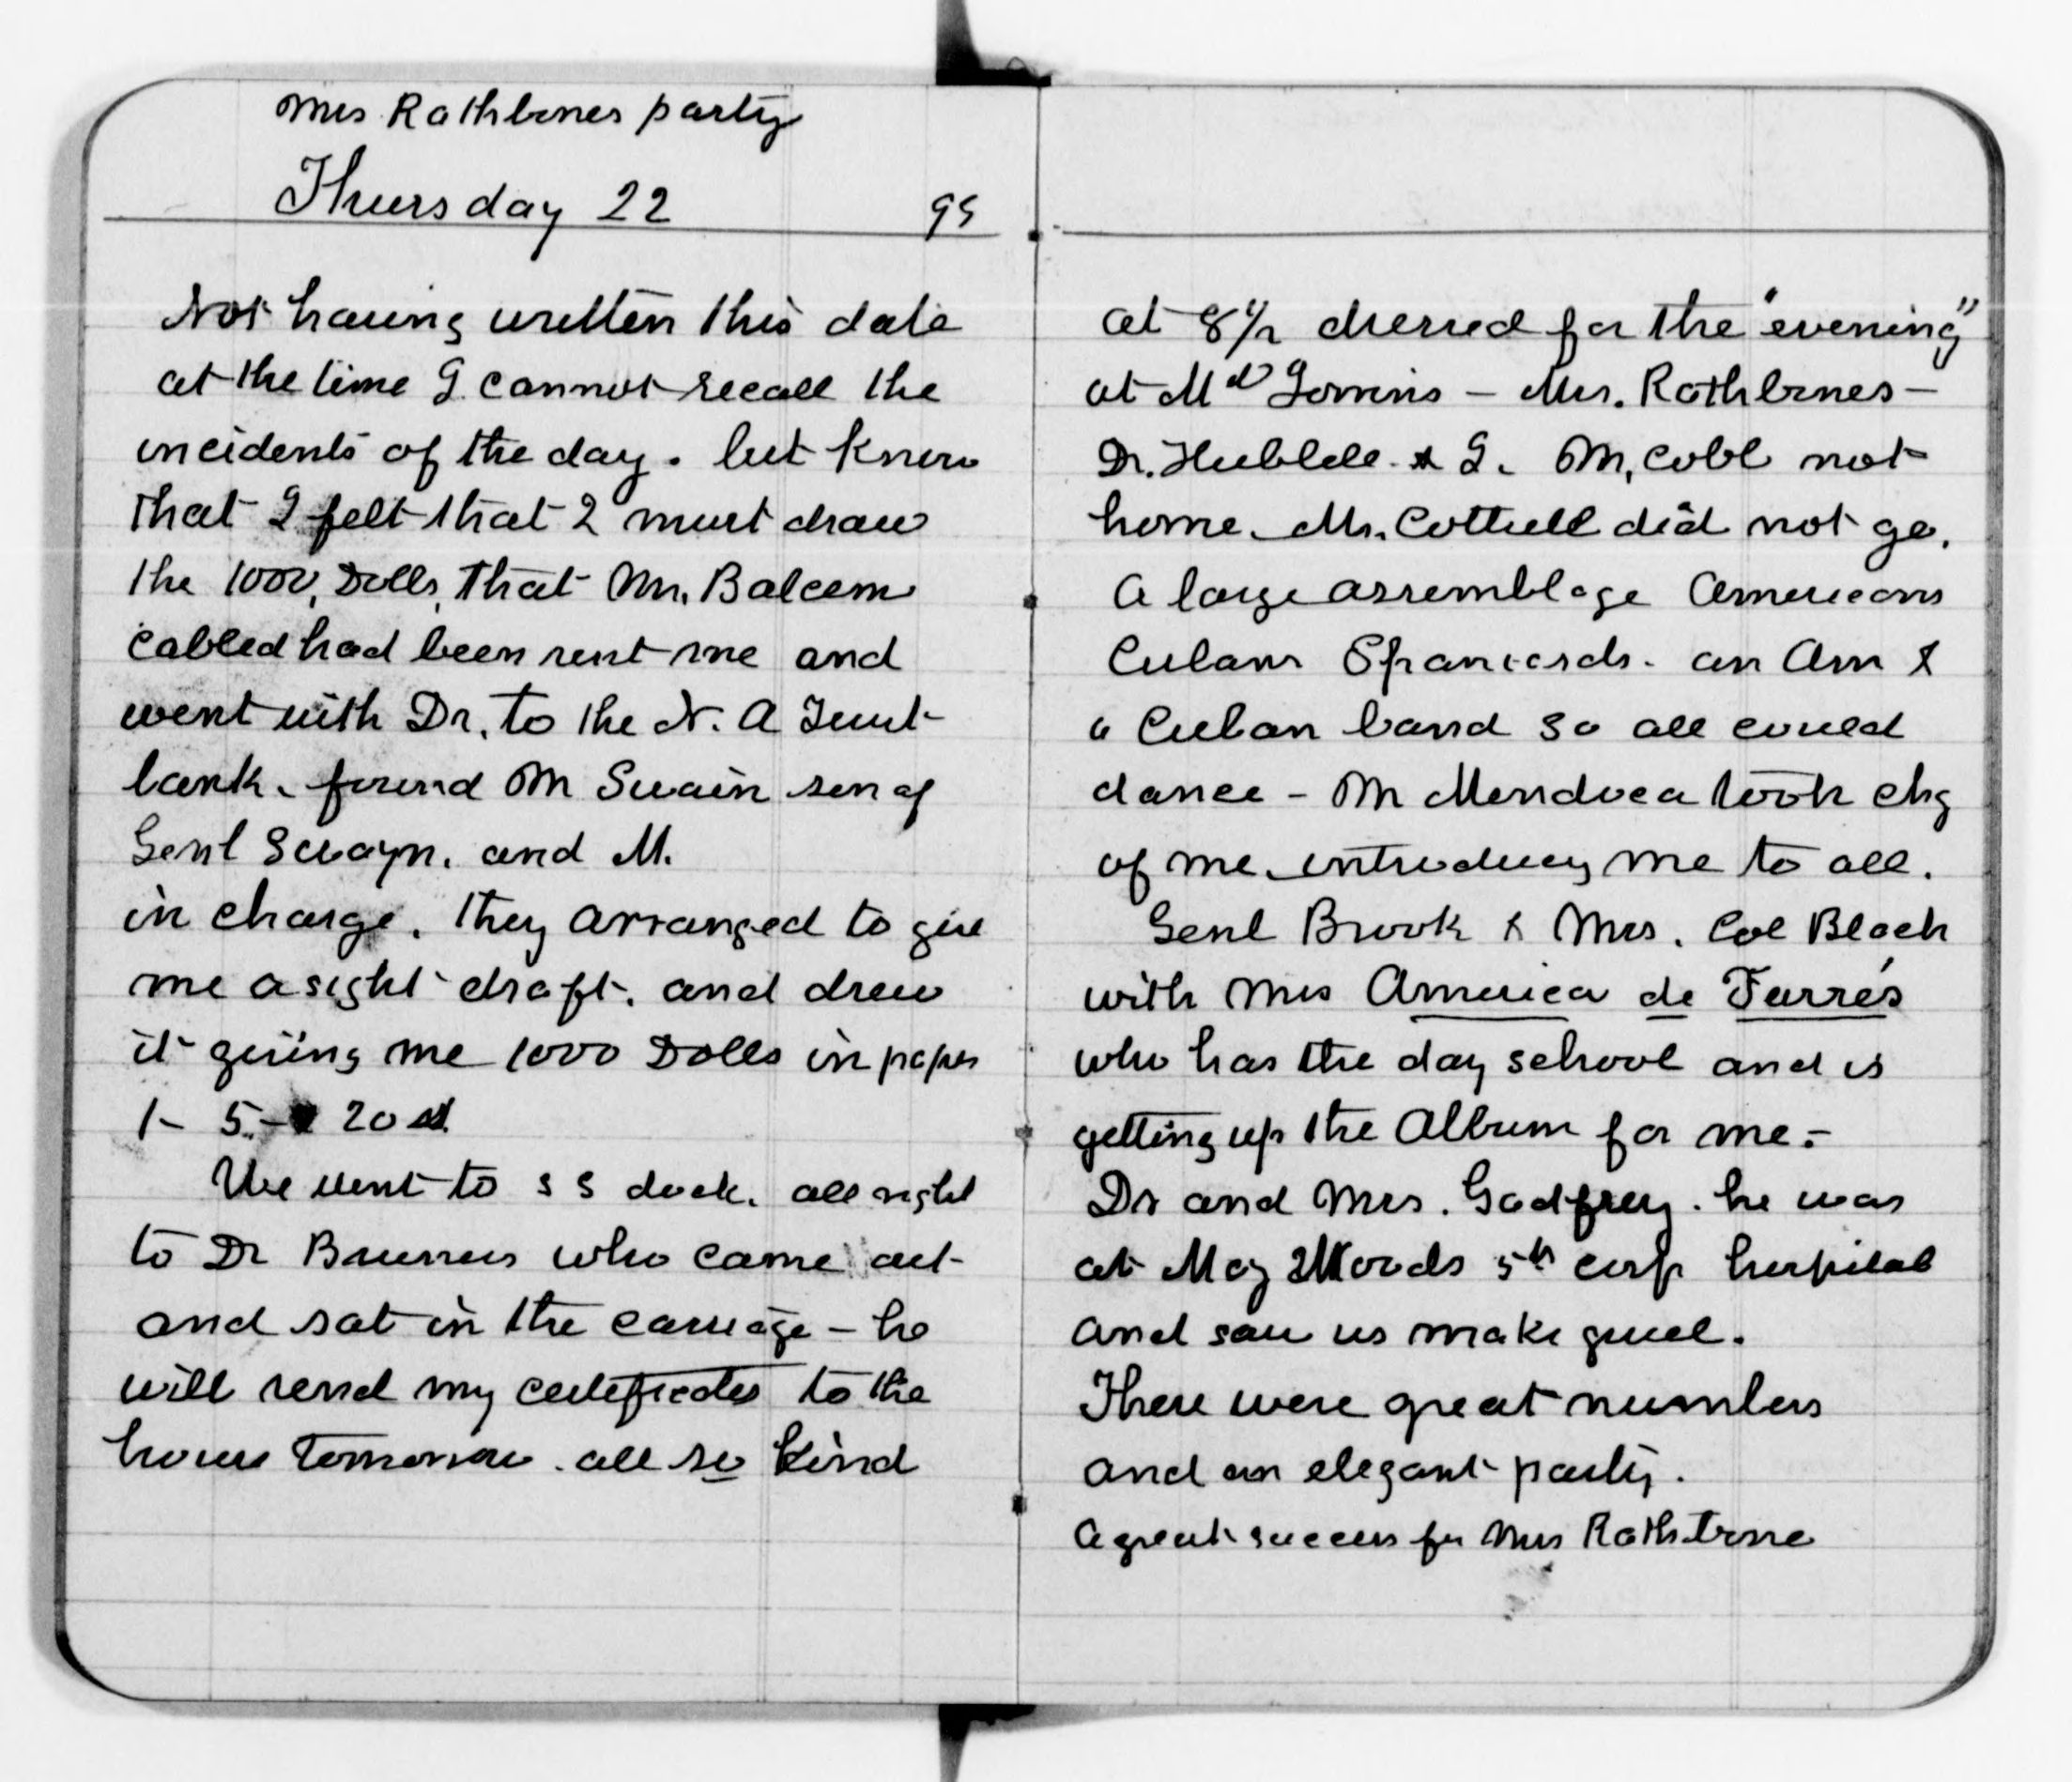 Mrs Rathbones party
Thursday 22 99
Not having written this date
at the time I cannot recall the
incidents of the day. but know
that I felt that I must draw
the 1000, Dolls, that Mr. Balcom
cabled had been sent me and
went with Dr. to the N. A Trust
bank. found Mr Swain son of
Genl Swayn. and M.
in charge. they arranged to give
me a sight draft. and drew
it giving me 1000 Dolls in paper
1- 5.- 20
We went to S S dock. all right
to Dr Brunners who came out
and sat in the carriage - he
will send my certificates to the
house tomorrow. all so kind
at 8 1/2 dressed for the "evening"
at Md - Mrs. Rathbones -
Dr. Hubbell & I. M, Cobb not
home. Mr. Cottrell did not go.
A large assemblage Americans
Cubans Spaniards. an Am &
a Cuban band so all could
dance - Mr Mendoca took chg
of me. introducy me to all.
Genl Brook & Mrs. Col Black
with Mrs America de Farrés
who has the day school and is
getting up the Album for me.-
Dr and Mrs. Godfrey. he was
at Maj Woods 5th corp hospital
and saw us make gruel.
There were great numbers
and an elegant party.
A great success for Mrs Rathbone